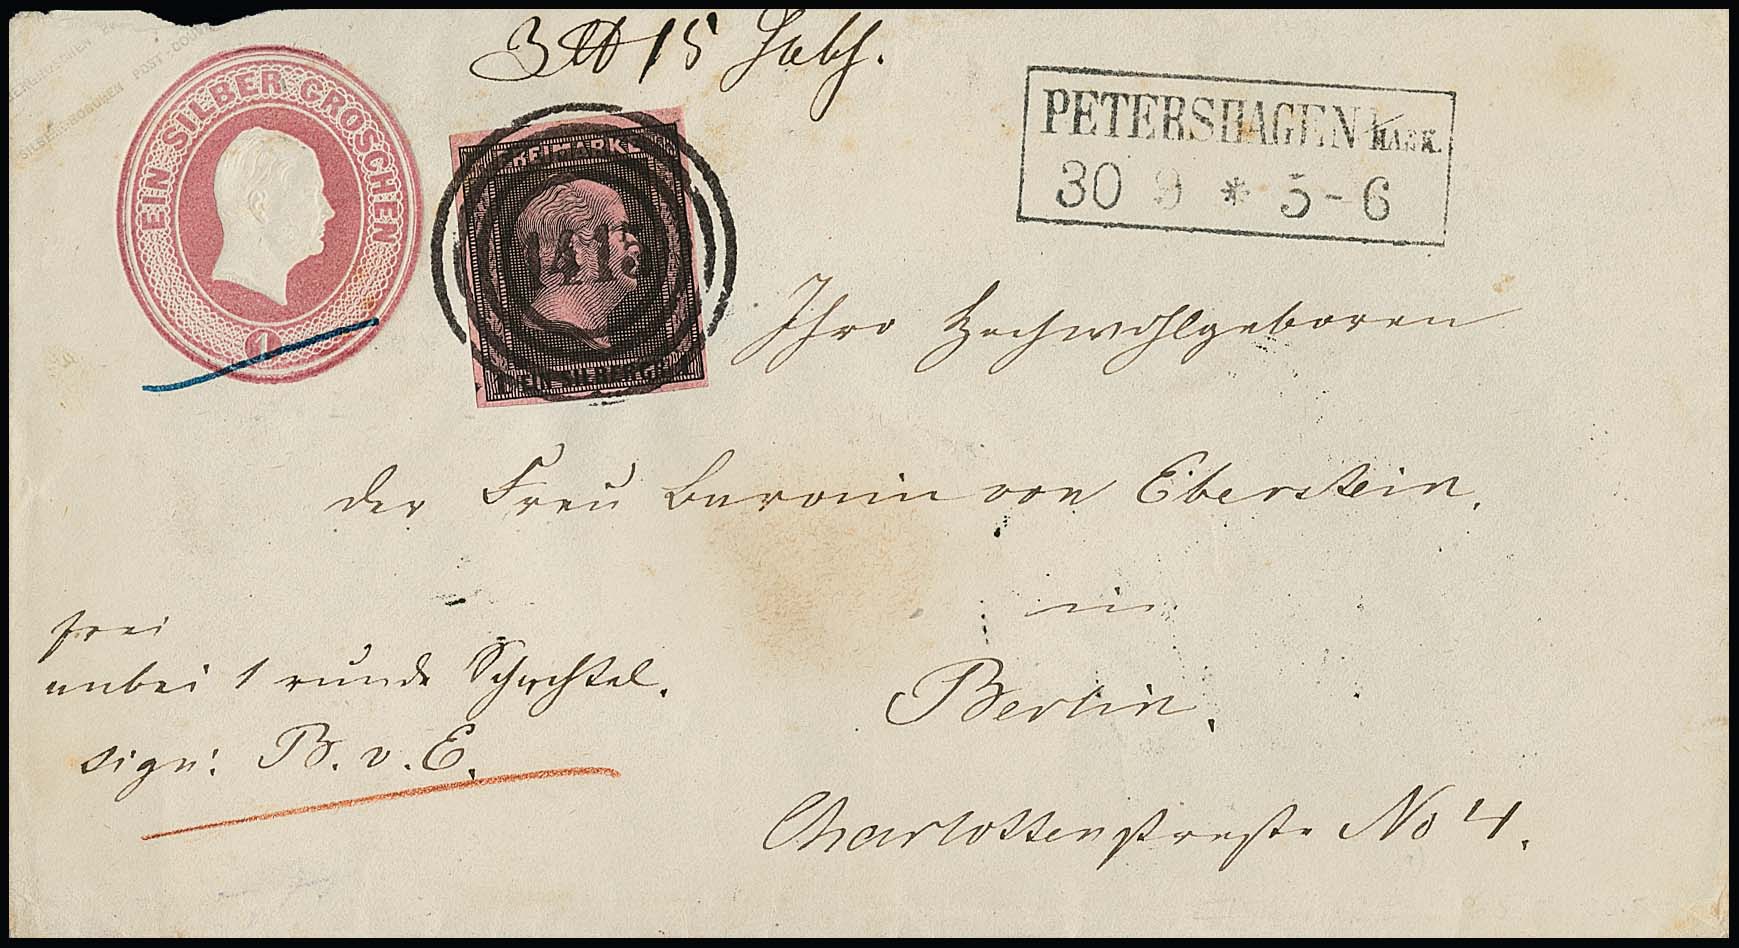 3 ℔ 15 Loth.
POST-COUVERT
EIN SILBER GROSCHEN
1
FREIMARKE
1411
EIN SILBERGR.
PETERSHAGEN i/MARK.
30 9 * 5-6
Ihro Hochwohlgeboren
der Frau Baronin von Eberstein.
in
Berlin.
Charlottenstraße No 4.
frei
anbei 1 runde Schachtel.
sign: B. v. E.